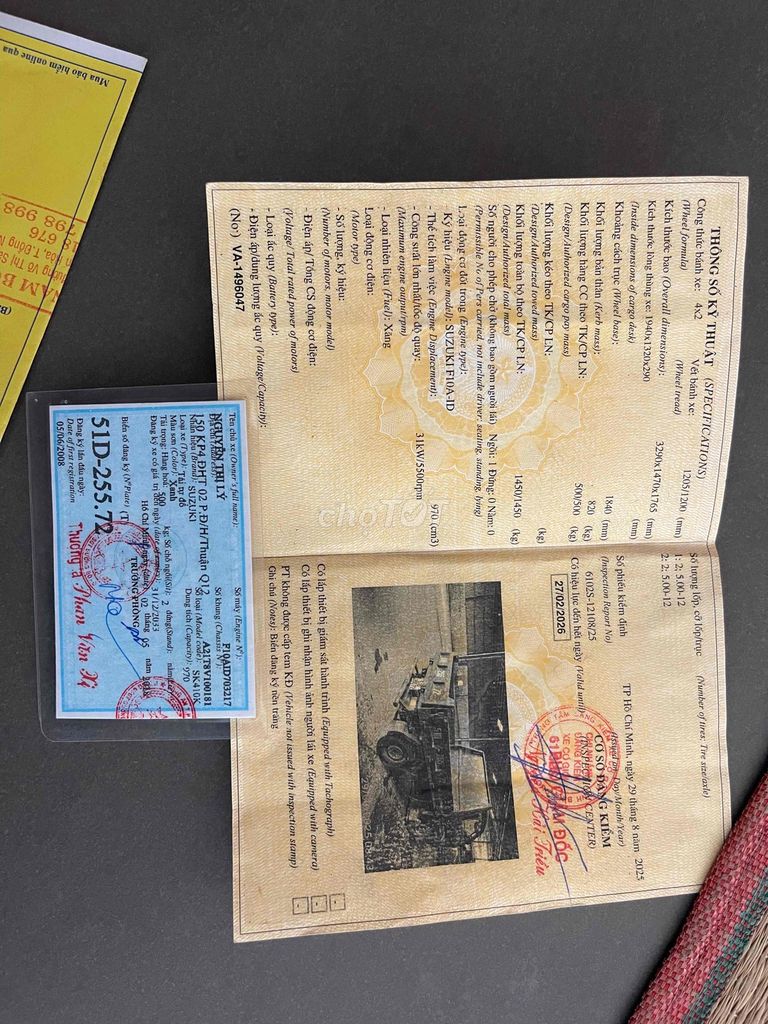 Mua bảo hiểm online qua
THÔNG SỐ KỸ THUẬT (SPECIFICATIONS)
Công thức bánh xe: 4x2 Vết bánh xe: 1205/1200 (mm)
(Wheel formula) (Wheel tread)
Kích thước bao (Overall dimensions): 3290x1470x1765 (mm)
Kích thước lòng thùng xe: 1940x1320x290 (mm)
(Inside dimensions of cargo desk)
Khoảng cách trục (Wheel base): 1840 (mm)
Khối lượng bản thân (Kerb mass): 820 (kg)
Khối lượng hàng CC theo TK/CP LN: 500/500 (kg)
(Design/Authorized cargo pay mass)
Khối lượng kéo theo TK/CP LN: (kg)
(Design/Authorized towed mass)
Khối lượng toàn bộ theo TK/CP LN: 1450/1450 (kg)
(Design/Authorized total mass)
Số người cho phép chở (không bao gồm người lái) Ngồi: 1 Đứng: 0 Nằm: 0
(Permissible No of Pers carried, not include driver: seating, standing, lying)
Loại động cơ đốt trong (Engine type):
Ký hiệu (Engine model): SUZUKI F10A-ID
- Thể tích làm việc (Engine Displacement): 970 (cm3)
- Công suất lớn nhất/tốc độ quay: 31kW/5500rpm
(Maximum engine output/rpm)
- Loại nhiên liệu (Fuel): Xăng
Loại động cơ điện:
(Motor type)
- Số lượng, ký hiệu:
(Number of motors, motor model)
- Điện áp/ Tổng CS động cơ điện:
(Voltage/ Total rated power of motors)
- Loại ắc quy (Battery type):
- Điện áp/dung lượng ắc quy (Voltage/Capacity):
(No) VA-1496047
Số lượng lốp, cỡ lốp/trục (Number of tires: Tire size/axle)
1: 2; 5.00-12
2: 2; 5.00-12
Số phiếu kiểm định
(Inspection Report No)
6102S-12108/25
Có hiệu lực đến hết ngày (Valid until)
27/02/2026
TP Hồ Chí Minh, ngày 29 tháng 8 năm 2025
(Issued on: Day/Month/Year)
CƠ SỞ ĐĂNG KIỂM
(INSPECTION CENTER)
Có lắp thiết bị giám sát hành trình (Equipped with Tachograph)
Có lắp thiết bị ghi nhận hình ảnh người lái xe (Equipped with camera)
PT không được cấp tem KĐ (Vehicle not issued with inspection stamp)
Ghi chú (Notes): Biển đăng ký nền trắng
Tên chủ xe (Owner's full name):
NGUYỄN THỊ LÝ
150 KP4 ĐHT 02 P.ĐH/Thuận Q12
Nhãn hiệu (Brand): SUZUKI
Loại xe (Type): Tải tự đổ
Màu sơn (Color): Xanh
Tải trọng: Hàng hoá: 500 kg; Số chỗ ngồi: 2
31/12/2033
Biển số đăng ký (N°Plate)
51D-255.72
Đăng ký lần đầu ngày:
Date of first registration
05/06/2008
Số máy (Engine N°):
F10AID703217
Số khung (Chassis N°):
A21T8V100181
Số loại (Model code): SK410K
Dung tích (Capacity): 970
TRƯỞNG PHÒNG
choTỐT